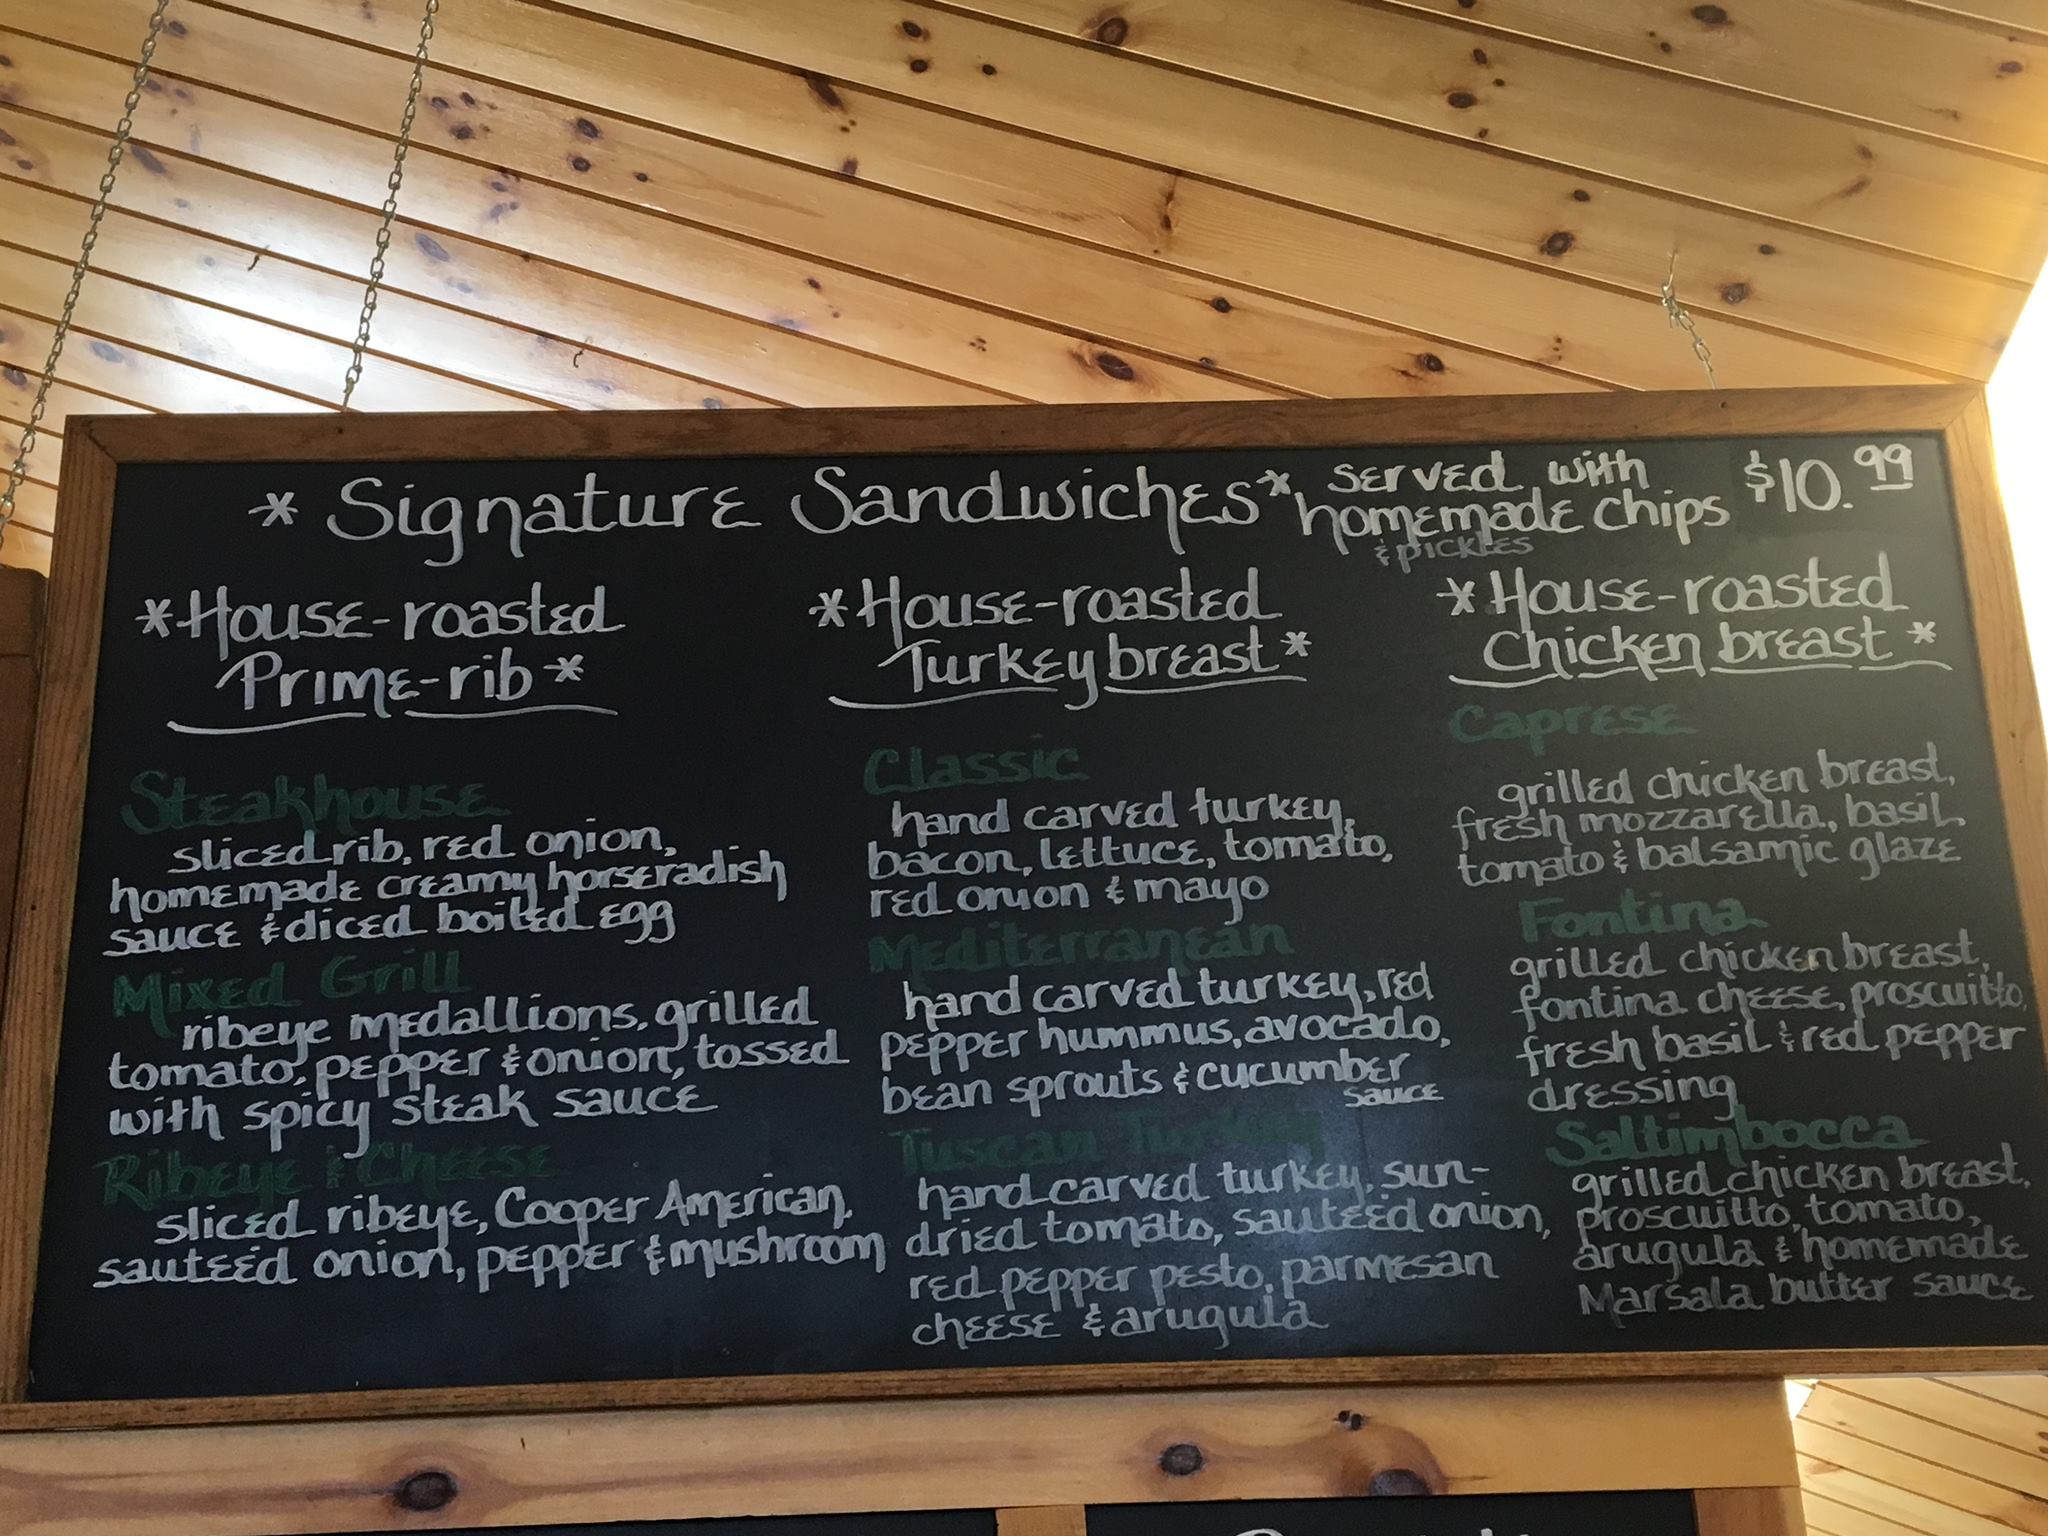 * Signature Sandwiches *
served with
homemade chips
& pickles
$10.99
*House-roasted
Prime-rib*
Steakhouse
sliced rib, red onion,
homemade creamy horseradish
sauce & diced boiled egg
Mixed Grill
ribeye medallions, grilled
tomato, pepper & onion, tossed
with spicy steak sauce
Ribeye & Cheese
sliced ribeye, Cooper American,
sauteéd onion, pepper & mushroom
*House-roasted
Turkey breast*
Classic
hand carved turkey,
bacon, lettuce, tomato,
red onion & mayo
Mediterranean
hand carved turkey, red
pepper hummus, avocado,
bean sprouts & cucumber
sauce
Tuscan Turkey
hand carved turkey, sun-
dried tomato, sauteéd onion,
red pepper pesto, parmesan
cheese & arugula
*House-roasted
Chicken breast*
Caprese
grilled chicken breast,
fresh mozzarella, basil,
tomato & balsamic glaze
Fontina
grilled chicken breast,
fontina cheese, proscuitto,
fresh basil & red pepper
dressing
Saltimbocca
grilled chicken breast,
proscuitto, tomato,
arugula & homemade
Marsala butter sauce